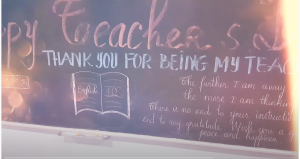 ppy Teacher's D
THANK YOU FOR BEING MY TEA
English
The further I am away
the more I am thinking
There is no end to your instructi
end to my gratitude. I offer you a
peace and happiness